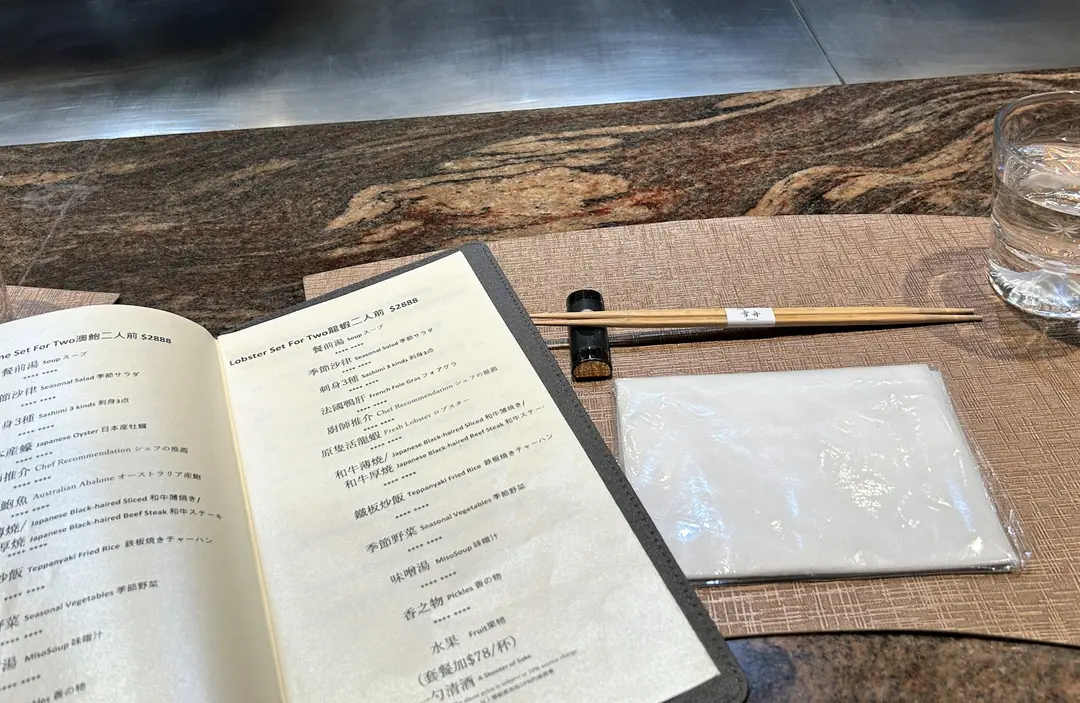 ne Set For Two澳鮑二人前 $2888
餐前湯 Soup スープ
**** ****
節沙律 Seasonal Salad 季節サラダ
**** ****
身3種 Sashimi 3 kinds 刺身3点
**** ****
產蠔 Japanese Oyster 日本産牡蠣
推介 Chef Recommendation シェフの推薦
鮑魚 Australian Abalone オーストラリア産鮑
薄燒/ Japanese Black-haired Sliced 和牛薄焼き/
厚燒 Japanese Black-haired Beef Steak 和牛ステーキ
**** ****
炒飯 Teppanyaki Fried Rice 鉄板焼きチャーハン
野菜 Seasonal Vegetables 季節野菜
**** ****
湯 MisoSoup 味噌汁
**** ****
Pickles 香の物
Lobster Set For Two龍蝦二人前 $2888
餐前湯 Soup スープ
**** ****
季節沙律 Seasonal Salad 季節サラダ
**** ****
刺身3種 Sashimi 3 kinds 刺身3点
**** ****
法國鴨肝 French Foie Gras フォアグラ
**** ****
廚師推介 Chef Recommendation シェフの推薦
**** ****
原隻活龍蝦 Fresh Lobster ロブスター
**** ****
和牛薄燒/ Japanese Black-haired Sliced 和牛薄焼き/
和牛厚燒 Japanese Black-haired Beef Steak 和牛ステー
**** ****
鐵板炒飯 Teppanyaki Fried Rice 鉄板焼きチャーハン
**** ****
季節野菜 Seasonal Vegetables 季節野菜
**** ****
味噌湯 MisoSoup 味噌汁
**** ****
香之物 Pickles 香の物
**** ****
水果 Fruit果物
(套餐加$78/杯)
一勺清酒 A Shooter of Sake
The above price is subject to 10% service charge